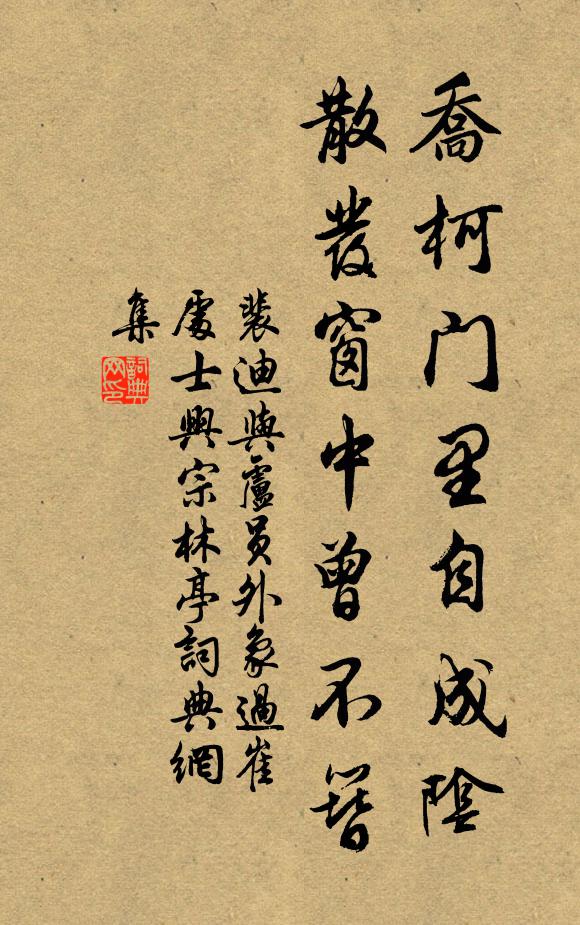 喬柯门里自成陰
散發窗中曾不簪
裴迪與盧员外象過崔
處士興宗林亭詞典網
集
詞典
网印